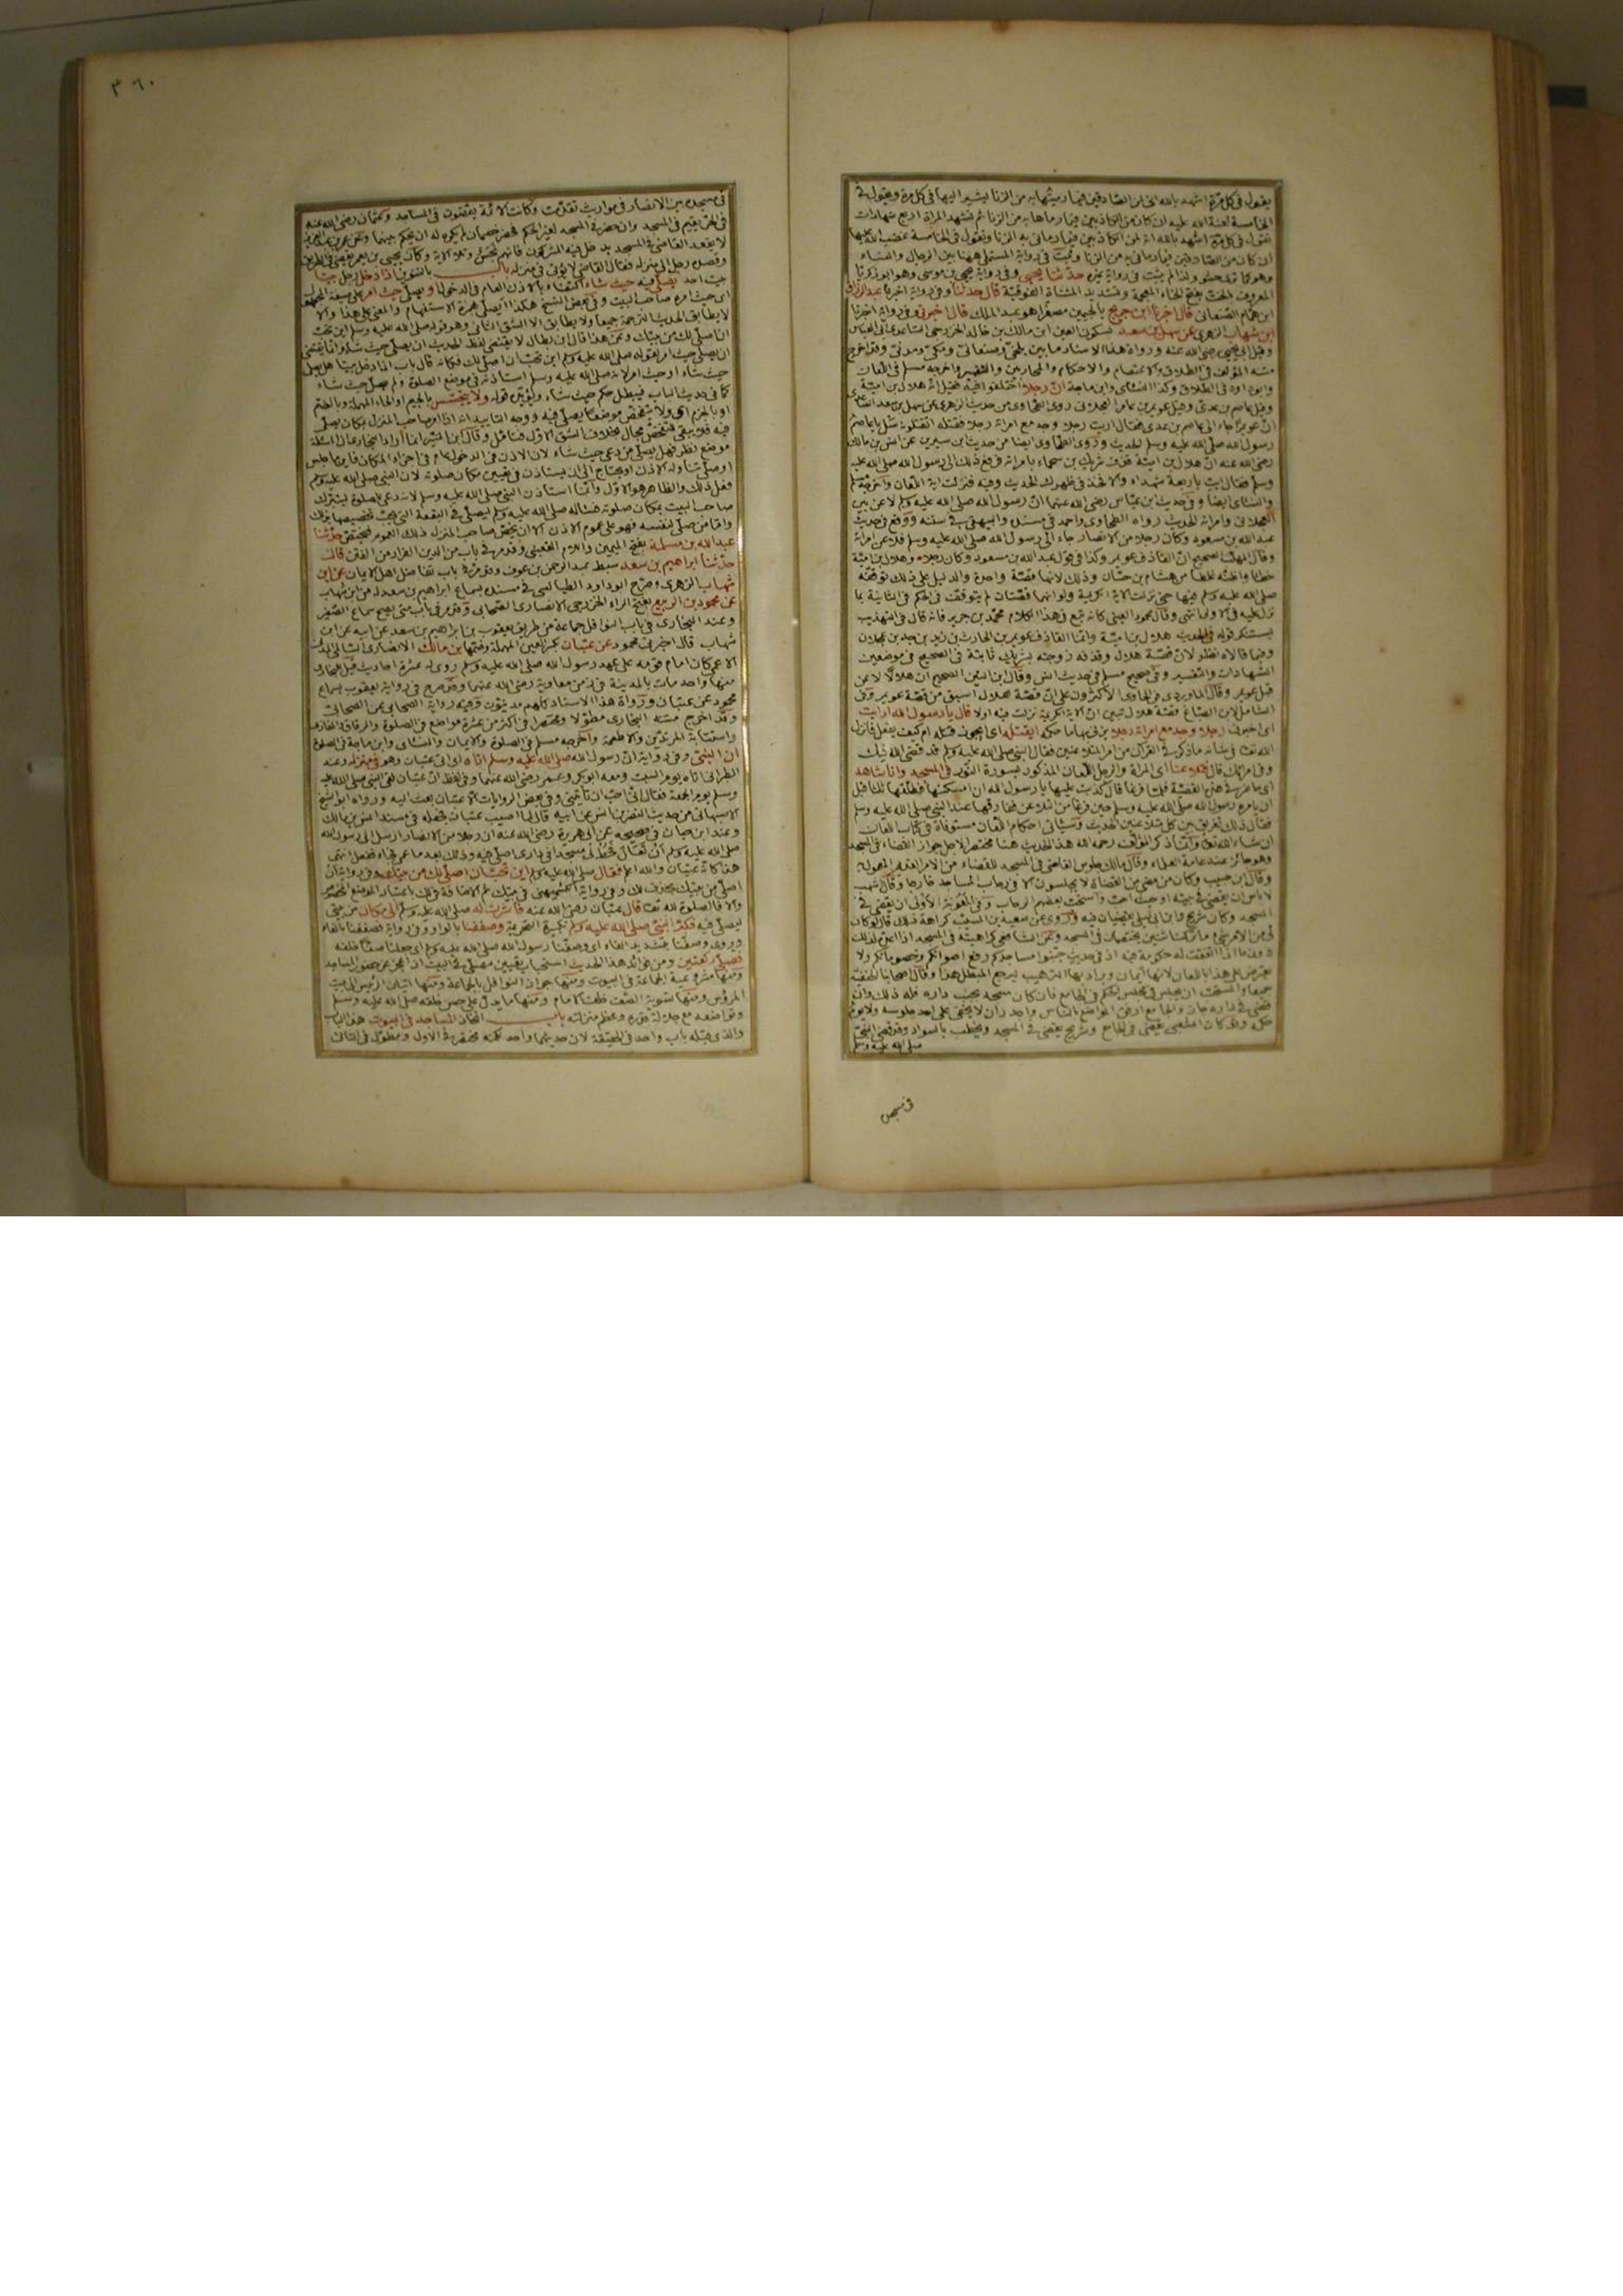 يقول في كل مرة اشهد بالله اني لمن الصادقين فيما رميتها به من الزنا يشير اليها في كل مرة ويقول في
الخامسة لعنة الله عليه ان كان من الكاذبين فيما رماها به من الزنا ثم تشهد المراة اربع شهادات
تقول في كل مرة اشهد بالله انه لمن الكاذبين فيما رماني به من الزنا وتقول في الخامسة غضب الله عليها
ان كان من الصادقين فيما رماني به من الزنا وثبت في رواية المستملي ههنا بين الرجال والنساء
وهو كما ترى حشو ولذا لم يثبت في رواية غيره حدثنا يحيى وفي رواية يحيى بن موسى وهو ابو زكريا
المعروف بالخت بفتح الخاء المعجمة وتشديد المثناة الفوقية قال حدثنا وفي رواية اخبرنا عبد الرزاق
ابن همام الصنعاني قال اخبرنا ابن جريج بالجيمين مصغرا هو عبد الملك قال اخبرني وفي رواية اخبرنا
ابن شهاب الزهري عن سهل بن سعد بسكون العين ابن مالك بن خالد الخزرجي الساعدي ابي العباس
وقيل ابي يحيى رضي الله عنه ورواة هذا الاسناد ما بين بلخي وصنعاني ومكي ومدني وقد اخرج
متنه المؤلف في الطلاق والاعتصام والاحكام والمحاربين والتفسير واخرجه مسلم في اللعان
وابو داود في الطلاق وكذا النسائي وابن ماجة ان رجلا اختلفوا فيه فقيل انه هلال بن امية
وقيل عاصم بن عدي وقيل عويمر بن عامر العجلاني روى الطحاوي من حديث الزهري عن سهل بن سعد الساعدي
ان عويمرا جاء الى عاصم بن عدي فقال ارايت رجلا وجد مع امراته رجلا فقتله اتقتلونه سل يا عاصم
رسول الله صلى الله عليه وسلم الحديث وروى الطحاوي ايضا من حديث ابن سيرين عن انس بن مالك
رضي الله عنه ان هلال بن امية قذف شريك بن سحماء بامراته فرفع ذلك الى رسول الله صلى الله عليه
وسلم فقال ايت باربعة شهداء والا فحد في ظهرك الحديث وفيه فنزلت اية اللعان واخرجه مسلم
والنسائي ايضا وفي حديث ابن عباس رضي الله عنهما ان رسول الله صلى الله عليه وسلم لاعن بين
العجلاني وامراته الحديث رواه الطحاوي واحمد في مسنده والبيهقي في سننه ووقع في حديث
عبد الله بن مسعود وكان رجلا من الانصار جاء الى رسول الله صلى الله عليه وسلم فلاعن امراته
وقال المهلب الصحيح ان القاذف عويمر
خطا واظنه غلطا من هشام بن حسان وذلك لانها قصة واحدة والدليل على ذلك توقفه
صلى الله عليه وسلم فيها حتى نزلت الاية الكريمة ولو انهما قصتان لم يتوقف في الحكم في الثانية بما
نزل عليه في الاولى انتهى وقال محمود العيني كانه تبع في هذا الكلام محمد بن جرير فانه قال في التهذيب
يستنكر قوله في الحديث هلال بن امية وانما القاذف عويمر بن الحارث بن زيد بن جد بن عجلان
وفيما قالاه نظر لان قصة هلال وقذفه زوجته بشريك ثابتة في الصحيح في موضعين
الشهادات والتفسير وفي صحيح مسلم في حديث انس وقال ابن التين الصحيح ان هلالا لاعن
قبل عويمر وقال الماوردي في الحاوي الاكثرون على ان قصة هلال اسبق من قصة عويمر وفي
الشامل لابن الصباغ قصة هلال تبين ان الاية الكريمة نزلت فيه اولا قال يا رسول الله ارايت
اي اخبرني رجلا وجد مع امراته رجلا يزني بها ما حكمه ايقتله اي ايجوز قتله ام كيف يفعل فانزل
الله تعالى في شانه ما ذكر في القرآن من امر المتلاعنين فقال النبي صلى الله عليه وسلم قد قضى الله فيك
وفي امراتك قال فتلاعنا اي المراة والرجل اللعان المذكور بسورة النور في المسجد وانا شاهد
فلما فرغا قال كذبت عليها يا رسول الله ان امسكتها فطلقها ثلاثا قبل
ان يامره رسول الله صلى الله عليه وسلم حين فرغا من التلاعن ففارقها عند النبي صلى الله عليه وسلم
فقال ذلك تفريق بين كل متلاعنين الحديث وسياتي احكام اللعان مستوفاة في كتاب اللعان
ان شاء الله تعالى وانما ذكر المؤلف رحمه الله هذا الحديث هنا مختصرا لاجل جواز القضاء في المسجد
وهو جائز عند عامة العلماء وقال مالك جلوس القاضي في المسجد للقضاء من الامر القديم المعمول به
وقال ابن حبيب وكان من مضى من القضاة لا يجلسون الا في رحاب المساجد خارجا وقال اشهب
لا باس ان يقضي في بيته او حيث احب واستحب بعضهم الرحاب وفي المعونة الاولى ان يقضي في
المسجد وكان شريح وابن ابي ليلى يقضيان فيه وروي عن سعيد بن المسيب كراهة ذلك قال لو كان
لي من الامر شيء ما تركت اثنين يختصمان في المسجد وعن الشافعي كراهيته في المسجد اذا اعده لذلك
دون ما اذا اتفقت له حكومة فيه اذ في حديث جنبوا مساجدكم رفع اصواتكم وخصوماتكم ولا
يعترض على هذا باللعان لانها ايمان ويراد بها الترهيب ليرجع المبطل هذا وقال اصحابنا الحنفية
جميعا والمستحب ان يجلس في مجلس الحكم في الجامع فان كان مسجد بجنب داره فله ذلك وان
قضى في داره جاز والجامع ارفق المواضع بالناس واجدر ان لا يخفى على احد جلوسه ولا يوم
حكمه وقد كان الشعبي يقضي في الجامع وشريح يقضي في المسجد ويخطب بالسواد وقد قضى النبي
صلى الله عليه وسلم
في مسجده
٣٦٠
في مسجده بين الانصار في مواريث تقدمت وكانت الائمة يقضون في المساجد وعثمان رضي الله عنه
لا يقعد القاضي في المسجد يدخل فيه المشركون فانهم نجس وتلا الاية وكان يحيى بن يعمر يقضي في الطريق
وقصده رجل الى منزله فقال القاضي لا يؤتى في منزله باب بالتنوين اذا دخل رجل بيتا
بيت احد يصلي فيه حيث شاء اكتفاء بالاذن العام في الدخول او يصلي حيث امر على صيغة المجهول
اي حيث امره صاحب البيت وفي بعض النسخ هكذا ايصلي بهمزة الاستفهام والمعنى على هذا والا
لا يطابق الحديث الترجمة جميعا ولا يطابق الا الشق الثاني وهو قوله صلى الله عليه وسلم اين تحب
ان اصلي لك من بيتك وعن هذا قال ابن بطال لا يقتضي لفظ الحديث ان يصلي حيث شاء وانما يقتضي
ان يصلي حيث امر لقوله صلى الله عليه وسلم اين تحب ان اصلي لك فكانه قال باب اذا دخل بيتا هل يصلي
حيث شاء او حيث امر لانه صلى الله عليه وسلم استاذنه في موضع الصلوة ولم يصل حيث شاء
كما في حديث الباب فيبطل حكم حيث شاء ويؤيده قوله ولا يتجسس بالجيم او الحاء المهملة وبالضم
او بالجزم اي ولا يتفحص موضعا يصلي فيه ووجه التاييد انه اذا امر صاحب المنزل بمكان يصلي
فيه فلا يبقى للتفحص مجال بخلاف الشق الاول فتامل وقال ابن المنير انما اراد البخاري ان المسئلة
موضع نظر فهل يصلي من دعي حيث شاء لان الاذن في الدخول عام في اجزاء المكان فاينما جلس
او صلى تناوله الاذن او يحتاج الى ان يستاذن في تعيين مكان صلوته لان النبي صلى الله عليه وسلم
فعل ذلك والظاهر هو الاول وانما استاذن النبي صلى الله عليه وسلم لانه دعي للصلوة ليتبرك
صاحب البيت بمكان صلوته فساله صلى الله عليه وسلم ليصلي في البقعة التي يحب تخصيصها بذلك
واما من صلى لنفسه فهو على عموم الاذن الا ان يخص صاحب المنزل ذلك العموم فيختص حدثنا
عبد الله بن مسلمة بفتح الميمين واللام القعنبي وقد مر في باب من الدين الفرار من الفتن قال
حدثنا ابراهيم بن سعد سبط عبد الرحمن بن عوف وقد مر في باب تفاضل اهل الايمان عن ابن
شهاب الزهري وصرح ابو داود الطيالسي في مسنده بسماع ابراهيم بن سعد له من ابن شهاب
عن محمود بن الربيع بفتح الراء الخزرجي الانصاري الصحابي وقد مر في باب متى يصح سماع الصغير
وعند البخاري في باب النوافل جماعة من طريق يعقوب بن ابراهيم بن سعد عن ابيه عن ابن
شهاب قال اخبرني محمود عن عتبان بكسر العين المهملة وضمها بن مالك الانصاري السالمي المدني
الاعمى كان امام قومه على عهد رسول الله صلى الله عليه وسلم روي له عشرة احاديث
منها واحد مات بالمدينة في زمن معاوية رضي الله عنهما وقد صرح في رواية يعقوب بسماع
محمود عن عتبان ورواة هذا الاسناد كلهم مدنيون وفيه رواية الصحابي عن الصحابي
وقد اخرج متنه البخاري مطولا ومختصرا في اكثر من عشرة مواضع في الصلوة والرقاق والمغازي
واستتابة المرتدين والاطعمة واخرجه مسلم في الصلوة والايمان والنسائي وابن ماجة في الصلوة
ان النبي وفي رواية ان رسول الله صلى الله عليه وسلم اتاه اي اتى عتبان وهو في منزله وعند
الطبراني اتاه يوم السبت ومعه ابو بكر وعمر رضي الله عنهما وفي لفظ ان عتبان لقي النبي صلى الله عليه
وسلم يوم الجمعة فقال اني احب ان تاتيني وفي بعض الروايات ان عتبان بعث اليه ورواه ابو الشيخ
الاصبهاني من حديث النضر بن انس عن ابيه قال لما اصيب عتبان فجعله في مسند انس بن مالك
وعند ابن حبان في صحيحه عن ابي هريرة رضي الله عنه ان رجلا من الانصار ارسل الى رسول الله
صلى الله عليه وسلم ان تعال فخط لي مسجدا في داري اصلي فيه وذلك بعد ما عمي فجاء ففعل انتهى
هذا كانه عتبان والله اعلم فقال صلى الله عليه وسلم اين تحب ان اصلي لك من بيتك وفي رواية ان
اصلي من بيتك بحذف لك وفي رواية الكشميهني في بيتك ثم الاضافة في لك باعتبار الموضع المخصوص
والا فالصلوة لله تعالى قال عتبان رضي الله عنه فاشرت له صلى الله عليه وسلم الى مكان من بيتي
ليصلي فيه فكبر النبي صلى الله عليه وسلم تكبيرة التحريمة وصففنا بالواو وفي رواية فصففنا بالفاء
ويروى وصفنا بتشديد الفاء اي وصفنا رسول الله صلى الله عليه وسلم اي جعلنا صفا خلفه
فصلى ركعتين ومن فوائد هذا الحديث استحباب تعيين مصلى في البيت اذا عجز عن حضور المساجد
ومنها مشروعية الجماعة في البيوت ومنها جواز النوافل بالجماعة ومنها اتيان الرئيس الى بيت
المرؤس ومنها تسوية الصف خلف الامام ومنها ما يدل على حسن خلقه صلى الله عليه وسلم
وتواضعه مع جلالة قدره وعظم منزلته باب اتخاذ المساجد في البيوت هذا الباب
والذي قبله باب واحد في الحقيقة لان حديثهما واحد لكنه مختصر في الاول ومطول في الثاني